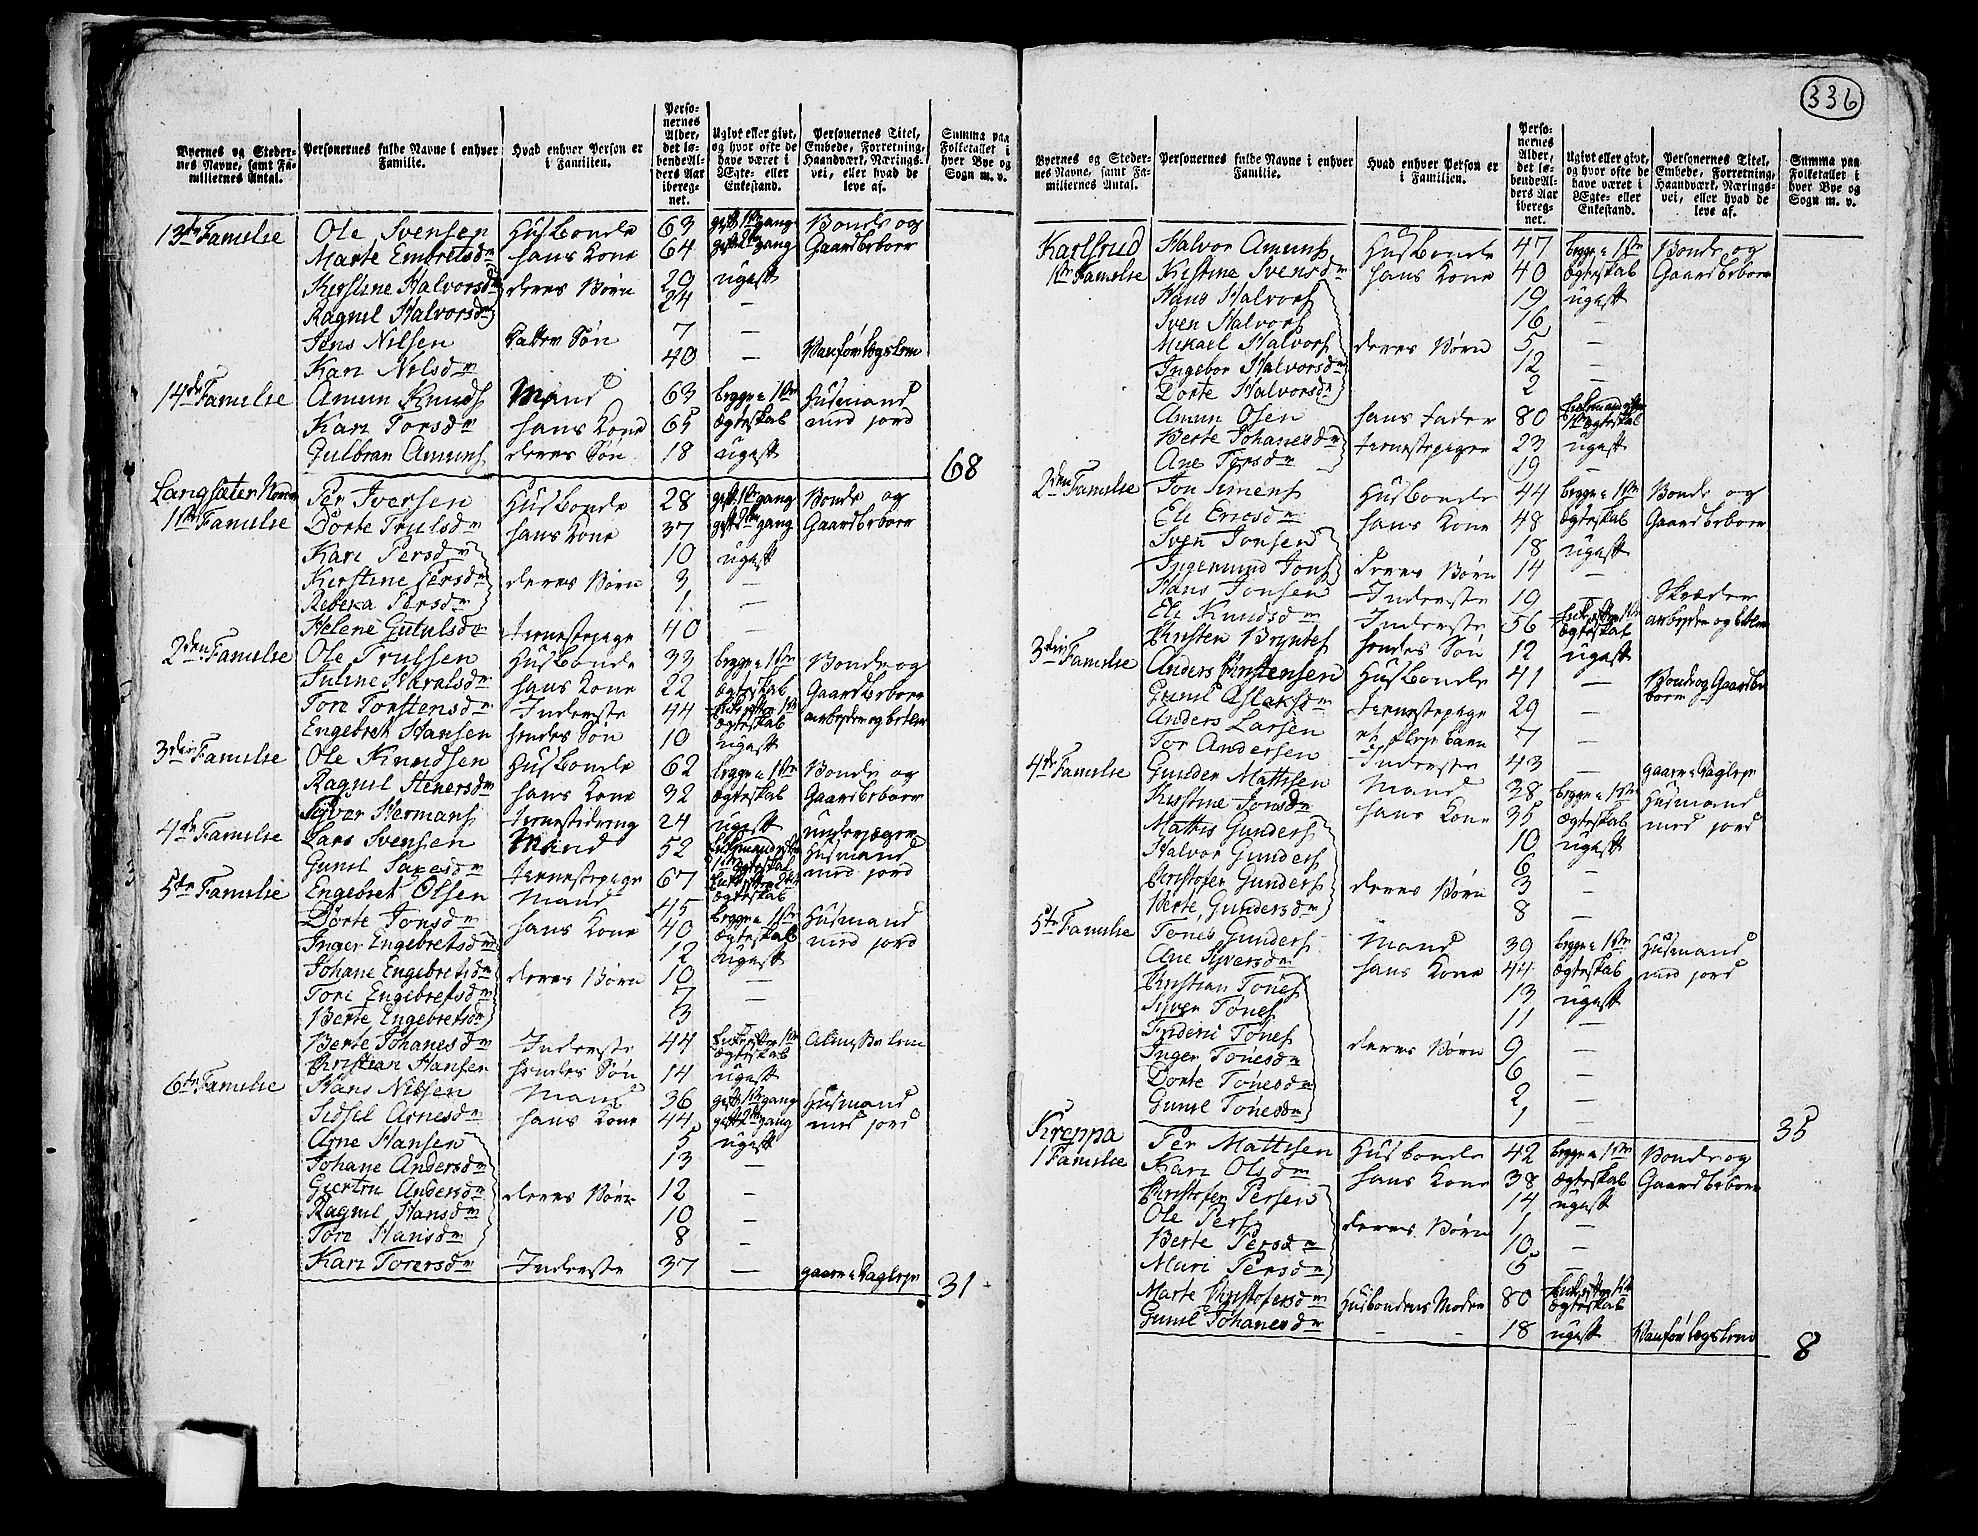 336
Byernes og Steder-
nes Navne, samt Fa-
miliernes Antal.
Personernes fulde Navne i enhver
Familie.
Hvad enhver Person er
i Familien.
Perso-
nernes
Alder,
det lø-
bende Al-
ders Aar
ibereg-
net.
Ugivt eller givt,
og hvor ofte de
have været i
Ægte- eller
Enkestand.
Personernes Titel,
Embede, Forretning,
Haandværk, Nærings-
vei, eller hvad de
leve af.
Summa paa
Folketallet i
hver Bye og
Sogn m. v.
13de Familie Ole Svensen Husbonde 63 gift 1ste gang Bonde og
Marte Embretsdr hans Kone 64 gift 2den gang Gaardbeboer
Kirstine Halvorsdr deres Børn 20 ugift
Ragnil Halvorsdr 24 —
Jens Nilsen Datter Søn 7 —
Kari Nilsdr 40 — Vanfør Legslem
14de Familie Amun Knuds Mand 63 begge i 1ste Husmand
Kari Torsdr hans Kone 65 Ægteskab med jord
Gulbran Amuns deres Søn 18 ugift
68
Langsæter Per Iversen Husbonde 28 gift 1ste gang Bonde og
1ste Familie Dorte Trulsdr hans Kone 37 gift 2den gang Gaardbeboer
Kari Persdr 10 ugift
Kirstine Persdr deres Børn 3 —
Rebeka Persdr 1 —
Helene Gutulsdr tienestepige 40 —
2den Familie Ole Trulsen Husbonde 33 begge i 1ste Bonde og
Juline Haralsdr hans Kone 22 Ægteskab Gaardbeboer
Tore Torstensdr Inderste 44 Enke efter 1ste Ægteskab arbeyder og betler
Engebret Hansen hendes Søn 10 ugift
3die Familie Ole Knudsen Husbonde 62 begge i 1ste Bonde og
Ragnil Stenersdr hans Kone 32 Ægteskab Gaardbeboer
Syver Hermans tienestedreng 24 ugift underjæger
4de Familie Lars Svensen Mand 52 Enkemand efter 1ste Ægteskab Husmand
Gunil Saxesdr tienestepige 67 Enke efter 2det Ægteskab med jord
5te Familie Engebret Olsen Mand 45 begge i 1ste Husmand
Dorte Jonsdr hans Kone 40 Ægteskab med jord
Inger Engebretsdr 12 ugift
Johane Engebretsdr deres Børn 10 —
Tore Engebretsdr 7 —
Berte Engebretsdr 3
Berte Johanesdr Inderste 44 Enke efter 1ste Ægteskab Almisse lem
Christian Hansen hendes Søn 14 ugift
6te Familie Hans Nilsen Mand 36 gift 1ste gang Husmand
Sidsel Arnesdr hans Kone 44 gift 2den gang med jord
Arne Hansen 5 ugift
Johane Andersdr 13 —
Giertru Andersdr deres Børn 12 —
Ragnil Hansdr 10 —
Tore Hansdr 8 —
Kari Torersdr Inderste 37 — gaar i Dagleye
31
Byernes og Steder-
nes Navne, samt Fa-
miliernes Antal.
Personernes fulde Navne i enhver
Familie.
Hvad enhver Person er
i Familien.
Perso-
nernes
Alder,
det lø-
bende Al-
ders Aar
ibereg-
net.
Ugivt eller givt,
og hvor ofte de
have været i
Ægte- eller
Enkestand.
Personernes Titel,
Embede, Forretning,
Haandværk, Nærings-
vei, eller hvad de
leve af.
Summa paa
Folketallet i
hver Bye og
Sogn m. v.
Karlsrud Halvor Amuns Husbonde 47 begge i 1ste Bonde og
1ste Familie Kirstine Svensdr hans Kone 40 Ægteskab Gaardbeboer
Hans Halvors 19 ugift
Sven Halvors 16 —
Mikael Halvors deres Børn 5 —
Ingebor Halvorsdr 12 —
Dorte Halvorsdr 2
Amun Olsen hans Fader 80 Enkemand efter 1ste Ægteskab
Berte Johanesdr tienestepiger 23 ugift
Ane Torsdr 19 —
2den Familie Jon Simens Husbonde 44 begge i 1ste Bonde og
Eli Ericsdr hans Kone 48 Ægteskab Gaardbeboer
Sven Jonsen 18 ugift
Ingemund Jons deres Børn 14 —
Hans Jonsen Inderste 19 — Skræder
Eli Knudsdr Inderste 56 Enke efter 1ste Ægteskab arbeyder og betler
Kristen Bryntes hendes Søn 12 ugift
3die Familie Anders Christensen Husbonde 41 — Bonde og Gaardbe
boer
Gunil Aslaksdr tienestepige 29 —
Anders Larsen et pleye barn 7 —
Tor Andersen Inderste 43 — gaar i Dagleye
4de Familie Gunder Mattisen Mand 38 begge i 1ste Husmand
Kirstine Jonsdr hans Kone 35 Ægteskab med jord
Mattis Gunders 10 ugift
Halvor Gunders 6 —
Christofer Gunders deres Børn 3 —
Berte Gundersdr 8 —
5te Familie Tønes Gunders Mand 39 begge i 1ste Husmand
Ane Syversdr hans Kone 44 Ægteskab med jord
Kristian Tønes 13 ugift
Syver Tønes 11 —
Frideric Tønes deres Børn 9 —
Inger Tønesdr 6 —
Dorte Tønesdr 2 —
Gunil Tønesdr 1 —
35
Kreppa Per Mattisen Husbonde 42 begge i 1ste Bonde og
1 Familie Kari Olsdr hans Kone 38 Ægteskab Gaardbeboer
Christofer Persen 14 ugift
Ole Pers deres Børn 1 —
Berte Persdr 10 —
Muri Persdr 5 —
Marte Christofersdr Husbondens Moder 80 Enke efter 1ste Ægteskab
Gunil Johanesdr — — 18 ugift Vanfør Legslem
8